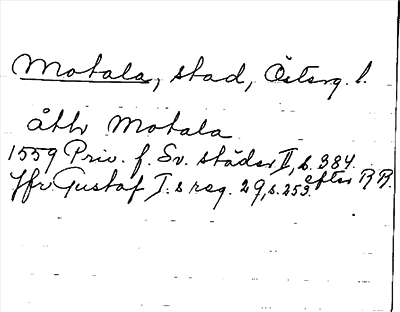 Motala, stad, Österg. l.
åtbr Motala
1559 Priv. f. Sv. städer II, s. 384.
Jfr. Gustaf I:s reg. 29, s. 253. efter RR.